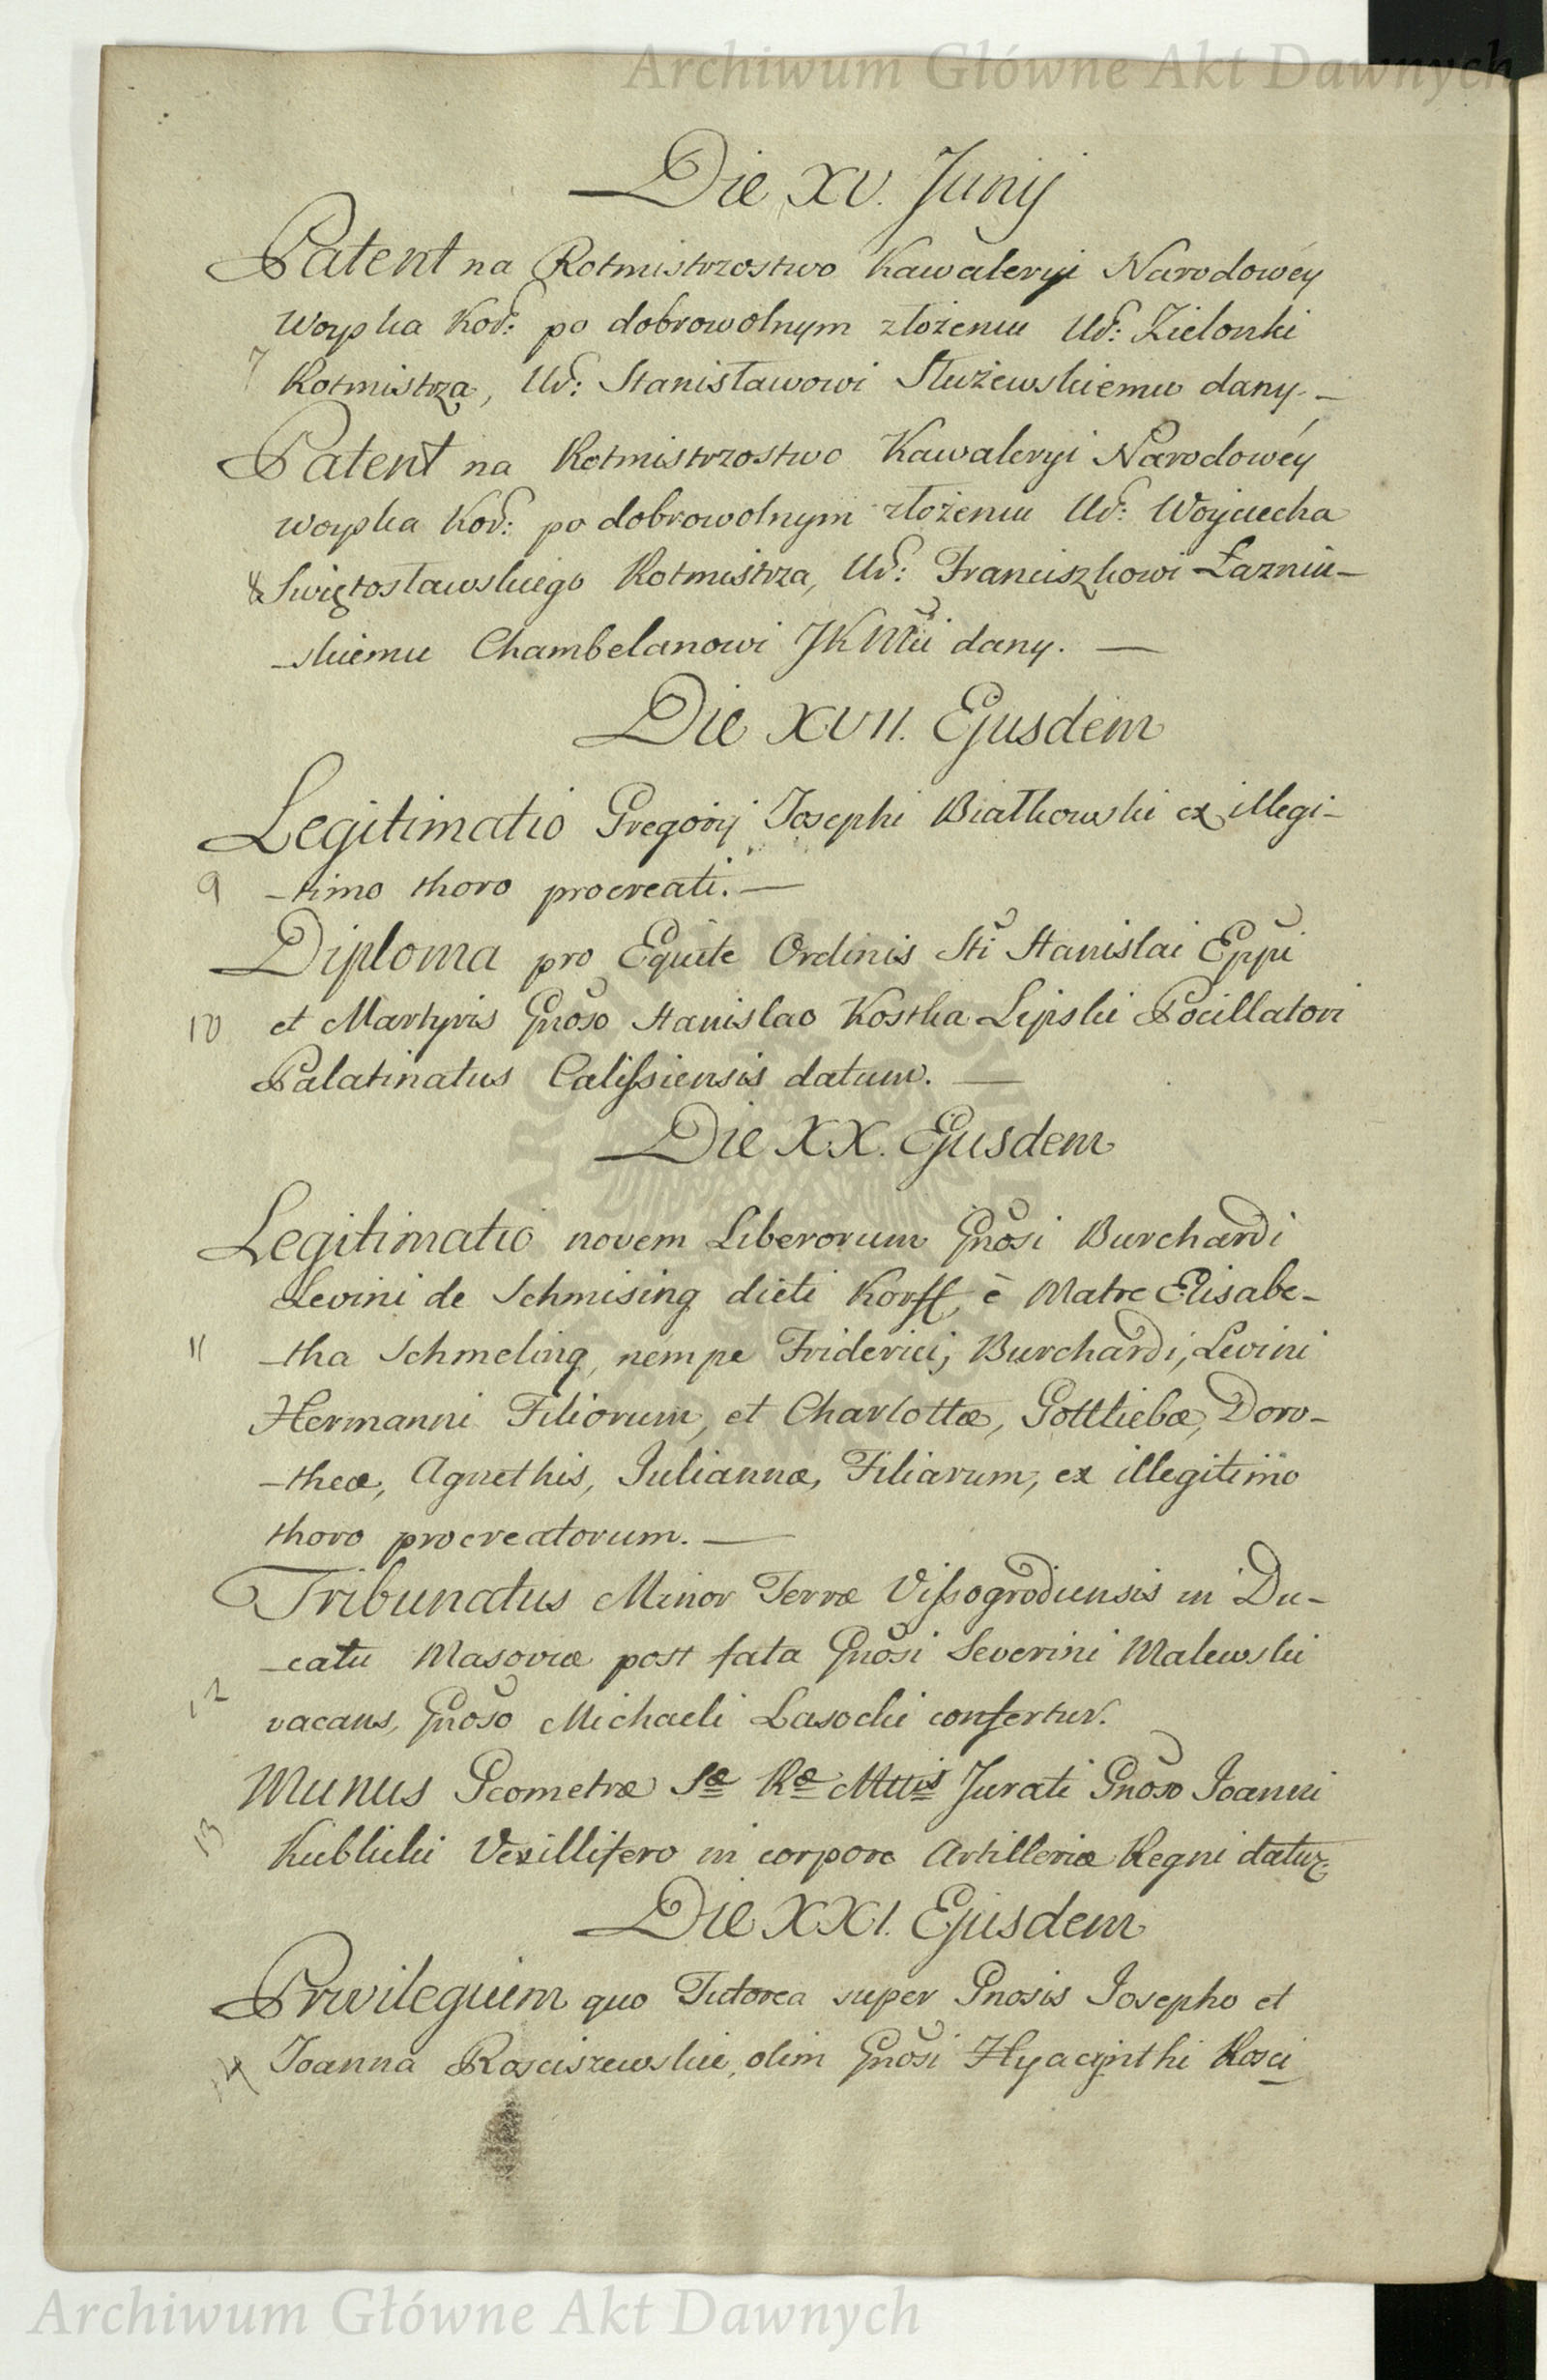 Archiwum Główne Akt Dawnych
Die XV. Junij
Patent na Rotmistrzostwo Kawaleryi Narodowéy
Woyska Kor: po dobrowolnym złożeniu Ur: Zielonki
7 Rotmistrza, Ur: Stanisławowi Służewskiemu dany. –
Patent na Rotmistrzostwo Kawaleryi Narodowéy
woyska Kor: po dobrowolnym złożeniu Ur: Woyciecha
8 Swiętosławskiego Rotmistrza, Ur: Franciszkowi Łaznin–
–skiemu Chambelanowi JKMci dany. —
Die XVII. Ejusdem
Legitimatio Gregorij Josephi Białkowski ex illegi–
9 –timo thoro procreati. —
Diploma pro Equite Ordinis Sti Stanislai Eppi
10 et Martyris Gnoso Stanislao Kostka Lipski Pocillatori
Palatinatus Calissiensis datum. —
Die XX. Ejusdem
Legitimatio novem Liberorum Gnosi Burchardi
Levini de Schmising dicti Korff, è Matre Elisabe–
11 –tha Schmeling, nempe Friderici, Burchardi, Levini
Hermanni Filiorum, et Charlottæ, Gottliebæ, Doro–
–theæ, Agnethis, Juliannæ, Filiarum, ex illegitimo
thoro procreatorum. —
Tribunatus Minor Terræ Vissogrodiensis in Du–
–catu Masoviæ post fata Gnosi Severini Malewski
12 vacans, Gnoso Michaeli Lasocki confertur.
Munus Geometræ Sæ Ræ Mttis Jurati Gnoso Joanni
13 Kublicki Vexillifero in corpore Artilleriæ Regni datur.
Die XXI. Ejusdem
Privilegium quo Tutorea super Gnosis Josepho et
14 Joanna Rosciszewskie, olim Gnosi Hyacynthi Rosci
Archiwum Główne Akt Dawnych